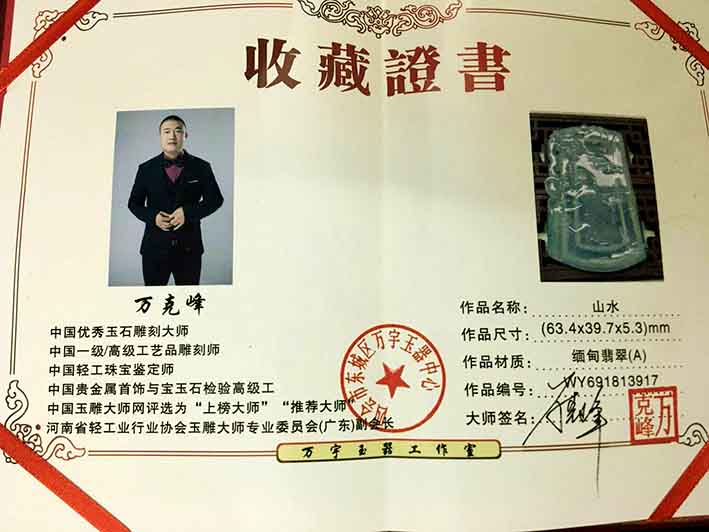 收藏證書
万克峰
中国优秀玉石雕刻大师
中国一级/高级工艺品雕刻师
中国轻工珠宝鉴定师
中国贵金属首饰与宝玉石检验高级工
中国玉雕大师网评选为“上榜大师”“推荐大师”
河南省轻工业行业协会玉雕大师专业委员会(广东)副会长
会市东城区万宇玉器中心
作品名称: 山水
作品尺寸: (63.4x39.7x5.3)mm
作品材质: 缅甸翡翠(A)
作品编号: WY691813917
大师签名: 万克峰
万克峰
万宇玉器工作室